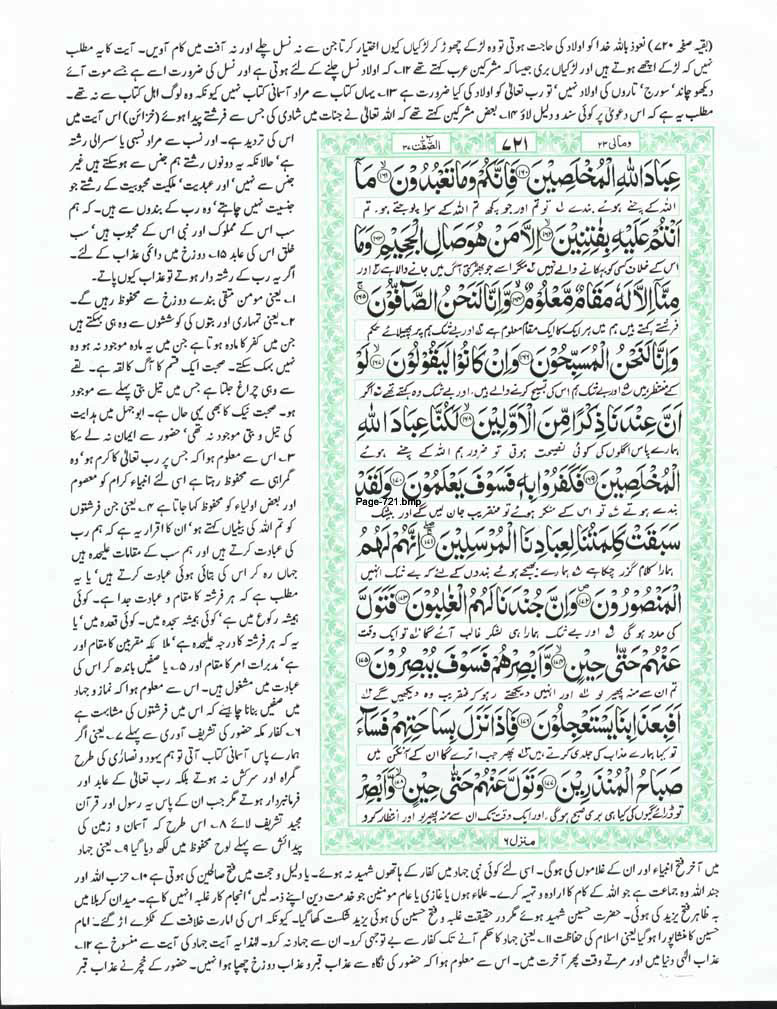 (بقیہ صفحہ ۷۲۰) نعوذ باللہ خدا کو اولاد کی حاجت ہوتی تو وہ لڑکے چھوڑ کر لڑکیاں کیوں اختیار کرتا جن سے نہ نسل چلے اور نہ آفت میں کام آویں۔ آیت کا یہ مطلب
نہیں کہ لڑکے اچھے ہوتے ہیں اور لڑکیاں بری جیسا کہ مشرکین عرب کہتے تھے ۱۲۔ کہ اولاد نسل چلنے کے لئے ہوتی ہے اور نسل کی ضرورت اسے ہے جسے موت آئے
دیکھو چاند' سورج' تاروں کی اولاد نہیں' تو رب تعالیٰ کو اولاد کی کیا ضرورت ہے ۱۳۔ یہاں کتاب سے مراد آسمانی کتاب نہیں کیونکہ وہ لوگ اہل کتاب سے نہ تھے۔
مطلب یہ ہے کہ اس دعویٰ پر کوئی سند و دلیل لاؤ ۱۴۔ بعض مشرکین کہتے تھے کہ اللہ تعالیٰ نے جنات میں شادی کی جس سے فرشتے پیدا ہوئے (خزائن) اس آیت میں
وَمَالِیَ ۲۳
۷۲۱
الصّٰٓفّٰت ۳۷
عِبَادَ اللّٰهِ الْمُخْلَصِيْنَ ۱۶۰ فَاِنَّكُمْ وَمَا تَعْبُدُوْنَ ۱۶۱ مَاۤ
اللہ کے چنے ہوئے بندے تو تم اور جو کچھ تم اللہ کے سوا پوجتے ہو۔ تم
اَنْتُمْ عَلَيْهِ بِفٰتِنِيْنَ ۱۶۲ اِلَّا مَنْ هُوَ صَالِ الْجَحِيْمِ ۱۶۳ وَمَا
اس کے خلاف کسی کو بہکانے والے نہیں مگر اسے جو بھڑکتی آگ میں جانے والا ہے اور
مِنَّاۤ اِلَّا لَهٗ مَقَامٌ مَّعْلُوْمٌ ۱۶۴ وَّاِنَّا لَنَحْنُ الصَّآفُّوْنَ ۱۶۵
فرشتے کہتے ہیں ہم میں ہر ایک کا ایک مقام معلوم ہے اور بے شک ہم پر پھیلائے حکم
وَاِنَّا لَنَحْنُ الْمُسَبِّحُوْنَ ۱۶۶ وَاِنْ كَانُوْا لَيَقُوْلُوْنَ ۱۶۷ لَوْ
کے منتظر ہیں اور بے شک ہم اس کی تسبیح کرنے والے ہیں، اور بے شک وہ کہتے تھے اگر
اَنَّ عِنْدَنَا ذِكْرًا مِّنَ الْاَوَّلِيْنَ ۱۶۸ لَكُنَّا عِبَادَ اللّٰهِ
ہمارے پاس اگلوں کی کوئی نصیحت ہوتی تو ضرور ہم اللہ کے چنے ہوئے
الْمُخْلَصِيْنَ ۱۶۹ فَكَفَرُوْا بِهٖ فَسَوْفَ يَعْلَمُوْنَ ۱۷۰ وَلَقَدْ
Page-721.bmp
بندے ہوتے تو اس کے منکر ہوئے تو عنقریب جان لیں گے اور بیشک
سَبَقَتْ كَلِمَتُنَا لِعِبَادِنَا الْمُرْسَلِيْنَ ۱۷۱ اِنَّهُمْ لَهُمُ
ہمارا کلام گزر چکا ہے ہمارے بھیجے ہوئے بندوں کے لئے کہ بے شک انہیں
الْمَنْصُوْرُوْنَ ۱۷۲ وَاِنَّ جُنْدَنَا لَهُمُ الْغٰلِبُوْنَ ۱۷۳ فَتَوَلَّ
کی مدد ہو گی اور بے شک ہمارا ہی لشکر غالب آئے گا تو ایک وقت
عَنْهُمْ حَتّٰى حِيْنٍ ۱۷۴ وَّاَبْصِرْهُمْ فَسَوْفَ يُبْصِرُوْنَ ۱۷۵
تم ان سے منہ پھیر لو اور انہیں دیکھتے رہو کہ عنقریب وہ دیکھیں گے
اَفَبِعَذَابِنَا يَسْتَعْجِلُوْنَ ۱۷۶ فَاِذَا نَزَلَ بِسَاحَتِهِمْ فَسَآءَ
تو کیا ہمارے عذاب کی جلدی کرتے ہیں پھر جب اترے گا ان کے آنگن میں
صَبَاحُ الْمُنْذَرِيْنَ ۱۷۷ وَتَوَلَّ عَنْهُمْ حَتّٰى حِيْنٍ ۱۷۸ وَّاَبْصِرْ
تو ڈرائے گیوں کی کیا ہی بری صبح ہو گی، اور ایک وقت تک ان سے منہ پھیر لو اور انتظار کرو
منزل ۶
اس کی تردید ہے۔ اور نسب سے مراد نسبی یا سسرالی رشتہ
ہے' حالانکہ یہ دونوں رشتے ہم جنس سے ہو سکتے ہیں غیر
جنس سے نہیں' اور عبدیت' ملکیت محبوبیت کے رشتے جو
جنسیت نہیں چاہتے' وہ رب کے بندوں سے ہیں۔ کہ ہم
سب اس کے مملوک اور نبی اس کے محبوب ہیں' سب
خلق اس کی عابد ۱۵۔ دوزخ میں دائمی عذاب کے لئے۔
اگر یہ رب کے رشتہ دار ہوتے تو عذاب کیوں پاتے۔
۱۔ یعنی مومن متقی بندے دوزخ سے محفوظ رہیں گے۔
۲۔ یعنی تمہاری اور بتوں کی کوششوں سے وہ ہی بہکتے ہیں
جن میں کفر کا مادہ ہوتا ہے جن میں یہ مادہ موجود نہ ہو وہ
نہیں بہک سکتے۔ صحبت ایک قسم کا آگ کا لقہ ہے۔ لقے
سے وہی چراغ جلتا ہے جس میں تیل بتی پہلے سے موجود
ہو۔ صحبت نیک کا بھی یہی حال ہے۔ ابوجہل میں ہدایت
کی تیل و بتی موجود نہ تھی' حضور سے ایمان نہ لے سکا
۳۔ اس سے معلوم ہوا کہ جس پر رب تعالیٰ کا کرم ہو' وہ
گمراہی سے محفوظ رہتا ہے اسی لئے انبیاء کرام کو معصوم
اور بعض اولیاء کو محفوظ کہا جاتا ہے ۴۔ یعنی جن فرشتوں
کو تم اللہ کی بیٹیاں کہتے ہو' ان کا اقرار یہ ہے کہ ہم رب
کی عبادت کرتے ہیں اور ہم سب کے مقامات علیحدہ ہیں
جہاں رہ کر اس کی بتائی ہوئی عبادت کرتے ہیں' یا یہ
مطلب ہے کہ ہر فرشتہ کا مقام و عبادت جدا ہے۔ کوئی
ہمیشہ رکوع میں ہے' کوئی ہمیشہ سجدہ میں۔ کوئی قعدہ میں' یا
یہ کہ ہر فرشتہ کا درجہ علیحدہ ہے' ملائکہ مقربین کا مقام اور
ہے' مدبرات امر کا مقام اور ۵۔ یا صفیں باندھ کر اس کی
عبادت میں مشغول ہیں۔ اس سے معلوم ہوا کہ نماز و جہاد
میں صفیں بنانا چاہیئے کہ اس میں فرشتوں کی مشابہت ہے
۶۔ کفار مکہ حضور کی تشریف آوری سے پہلے ۷۔ یعنی اگر
ہمارے پاس آسمانی کتاب آتی تو ہم یہود و نصاریٰ کی طرح
گمراہ اور سرکش نہ ہوتے بلکہ رب تعالیٰ کے عابد اور
فرمانبردار ہوتے مگر جب ان کے پاس یہ رسول اور قرآن
مجید تشریف لائے ۸۔ اس طرح کہ آسمان و زمین کی
پیدائش سے پہلے لوح محفوظ میں لکھ دیا گیا ۹۔ یعنی جہاد
میں آخر فتح انبیاء اور ان کے غلاموں کی ہوگی۔ اسی لئے کوئی نبی جہاد میں کفار کے ہاتھوں شہید نہ ہوئے۔ یا دلیل و حجت میں فتح صالحین کی ہوتی ہے ۱۰۔ حزب اللہ اور
جند اللہ وہ جماعت ہے جو اللہ کے کام کا ارادہ و تہیہ کرے۔ علماء ہوں یا غازی یا عام مومنین جو خدمت دین اپنے ذمہ لیں' انجام کار غلبہ انہیں کا ہے۔ میدان کربلا میں
بہ ظاہر فتح یزید کی ہوئی۔ حضرت حسین شہید ہوئے مگر در حقیقت غلبہ و فتح حسین کی ہوئی یزید شکست کھا گیا۔ کیونکہ اس کی امارت خلافت کے ٹکڑے اڑ گئے۔ امام
حسین کا منشا پورا ہو گیا یعنی اسلام کی حفاظت ۱۱۔ یعنی جہاد کا حکم آنے تک کفار سے بے توجہی کرو۔ ان سے جہاد نہ کرو۔ لہٰذا یہ آیت جہاد کی آیت سے منسوخ ہے ۱۲۔
عذاب الٰہی دنیا میں اور مرتے وقت پھر آخرت میں۔ اس سے معلوم ہوا کہ حضور کی نگاہ سے عذاب قبر و عذاب دوزخ چھپا ہوا نہیں۔ حضور کے خچر نے عذاب قبر